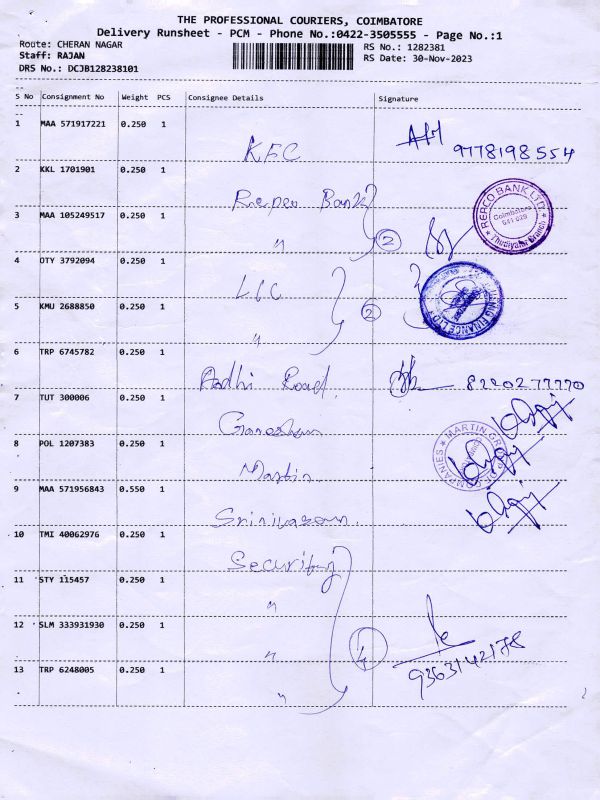 THE PROFESSIONAL COURIERS, COIMBATORE
Delivery Runsheet - PCM - Phone No.:0422-3505555 - Page No.:1
Route: CHERAN NAGAR RS No.: 1282381
Staff: RAJAN RS Date: 30-Nov-2023
DRS No.: DCJB128238101
S No Consignment No Weight PCS Consignee Details Signature
1 MAA 571917221 0.250 1 KFC 9778198554
2 KKL 1701901 0.250 1 Repco Bank
REPCO BANK LTD. Coimbatore 641 029 Thudiyalur Branch
3 MAA 105249517 0.250 1 " 2
4 OTY 3792094 0.250 1 LIC
FINANCE LTD
5 KMU 2688850 0.250 1 " 2
6 TRP 6745782 0.250 1 Aadhi Road. 8220277770
7 TUT 300006 0.250 1 Ganeshan
8 POL 1207383 0.250 1 Martin
MARTIN GROUP OF COMPANIES
9 MAA 571956843 0.550 1 Srinivasan.
10 TMI 40062976 0.250 1 Security
11 STY 115457 0.250 1 "
12 SLM 333931930 0.250 1 " 4
13 TRP 6248005 0.250 1 " 9363142178